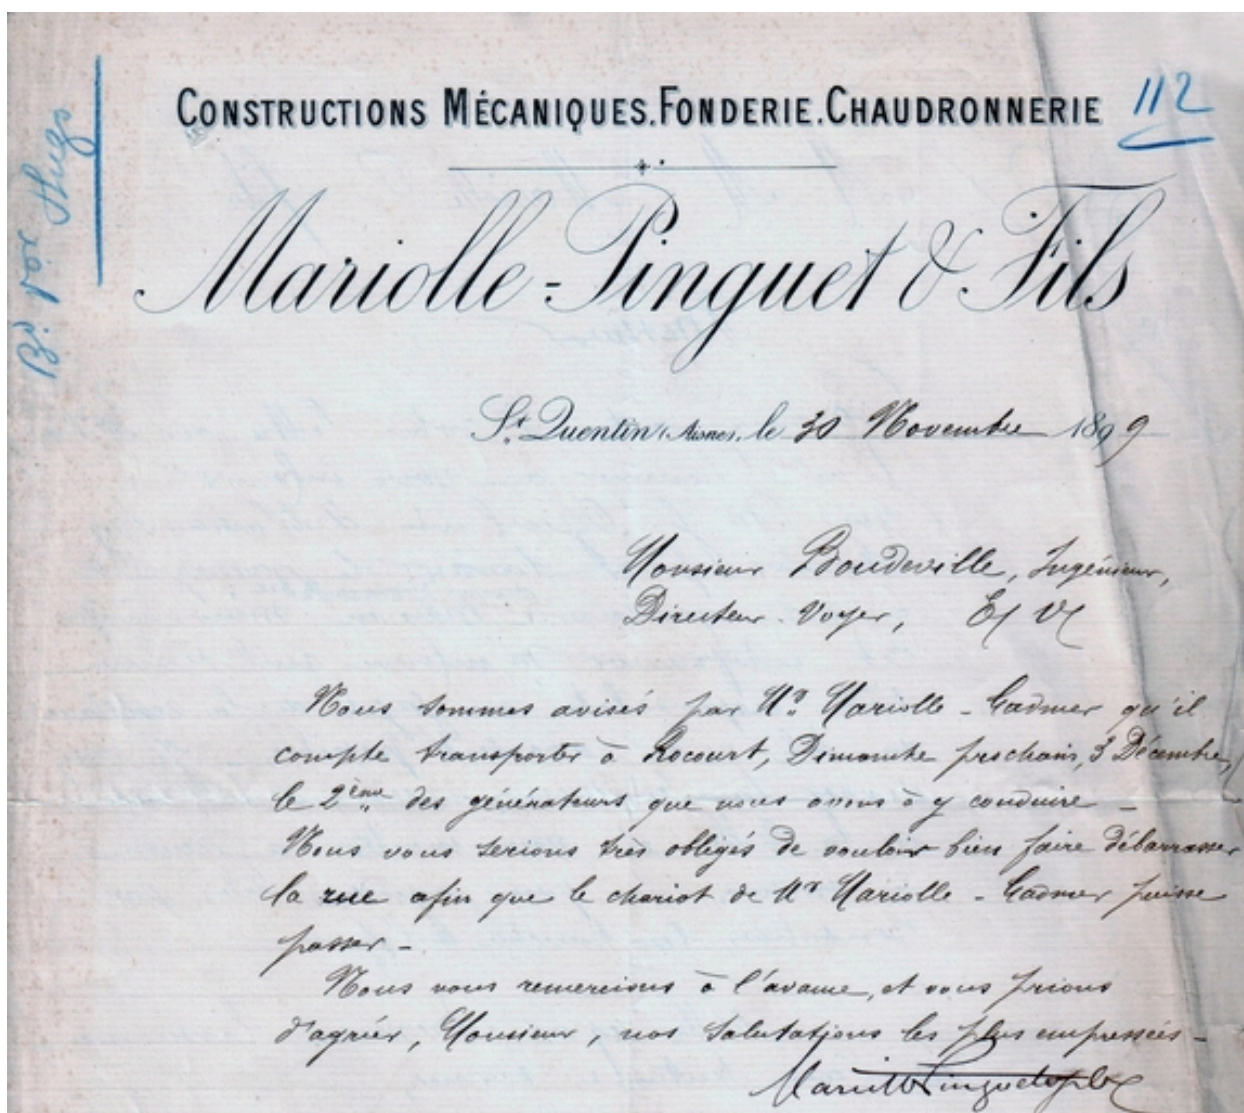 CONSTRUCTIONS MÉCANIQUES.FONDERIE.CHAUDRONNERIE
112
Mariolle-Pinguet & Fils
St. Quentin (Aisne), le 30 Novembre 1899
Monsieur Boudeville, Ingénieur,
Directeur-Voyer, E/ V/
Nous sommes avisés par Mr. Mariolle-Cadmer qu'il
compte transporter à Rocourt, Dimanche prochain, 3 Décembre,
le 2ème des générateurs que nous avons à y conduire -
Nous vous serions très obligés de vouloir bien faire débarrasser
la rue afin que le chariot de Mr Mariolle-Cadmer puisse
passer -
Nous vous remercions à l'avance, et vous prions
d'agréer, Monsieur, nos salutations les plus empressées -
Mariolle Pinguet & fils